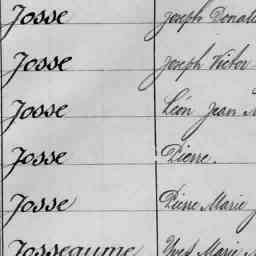 Josse Joseph
Josse Joseph Victor
Josse Léon Jean
Josse Pierre
Josse Pierre Marie
Josseaume Yves Marie